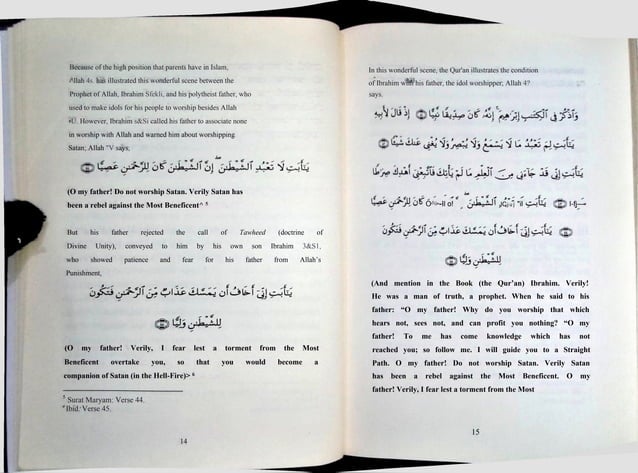 Because of the high position that parents have in Islam,
Allah 4s. has illustrated this wonderful scene between the
Prophet of Allah, Ibrahim Sfekli, and his polytheist father, who
used to make idols for his people to worship besides Allah
However, Ibrahim s&Si called his father to associate none
in worship with Allah and warned him about worshipping
Satan; Allah "V says;
يَتَأَبَتِ لَا تَعْبُدِ الشَّيْطَنَ إِنَّ الشَّيْطَنَ كَانَ لِلرَّحْمَنِ عَصِيًّا
(O my father! Do not worship Satan. Verily Satan has
been a rebel against the Most Beneficent^ 5
But his father rejected the call of Tawheed (doctrine of
Divine Unity), conveyed to him by his own son Ibrahim 3&S1,
who showed patience and fear for his father from Allah's
Punishment,
يَتَأَبَتِ إِنِّي أَخَافُ أَن يَمَسَّكَ عَذَابٌ مِّنَ الرَّحْمَنِ فَتَكُونَ
لِلشَّيْطَنِ وَلِيًّا
(O my father! Verily, I fear lest a torment from the Most
Beneficent overtake you, so that you would become a
companion of Satan (in the Hell-Fire)> 6
5 Surat Maryam: Verse 44.
6 Ibid: Verse 45.
14
In this wonderful scene, the Qur'an illustrates the condition
of Ibrahim with his father, the idol worshipper, Allah 4?
says.
وَاذْكُرْ فِي الْكِتَبِ إِبْرَهِيمَ إِنَّهُ كَانَ صِدِّيقًا نَّبِيًّا إِذْ قَالَ لِأَبِيهِ
يَتَأَبَتِ لِمَ تَعْبُدُ مَا لَا يَسْمَعُ وَلَا يُبْصِرُ وَلَا يُغْنِي عَنكَ شَيْئًا
يَتَأَبَتِ إِنِّي قَدْ جَاءَنِي مِنَ الْعِلْمِ مَا لَمْ يَأْتِكَ فَاتَّبِعْنِي أَهْدِكَ صِرَطًا
يَتَأَبَتِ الشَّيْطَنَ عَصِيًّا
يَتَأَبَتِ إِنِّي أَخَافُ أَن يَمَسَّكَ عَذَابٌ مِّنَ الرَّحْمَنِ فَتَكُونَ
لِلشَّيْطَنِ وَلِيًّا
(And mention in the Book (the Qur'an) Ibrahim. Verily!
He was a man of truth, a prophet. When he said to his
father: "O my father! Why do you worship that which
hears not, sees not, and can profit you nothing? "O my
father! To me has come knowledge which has not
reached you; so follow me. I will guide you to a Straight
Path. O my father! Do not worship Satan. Verily Satan
has been a rebel against the Most Beneficent. O my
father! Verily, I fear lest a torment from the Most
15